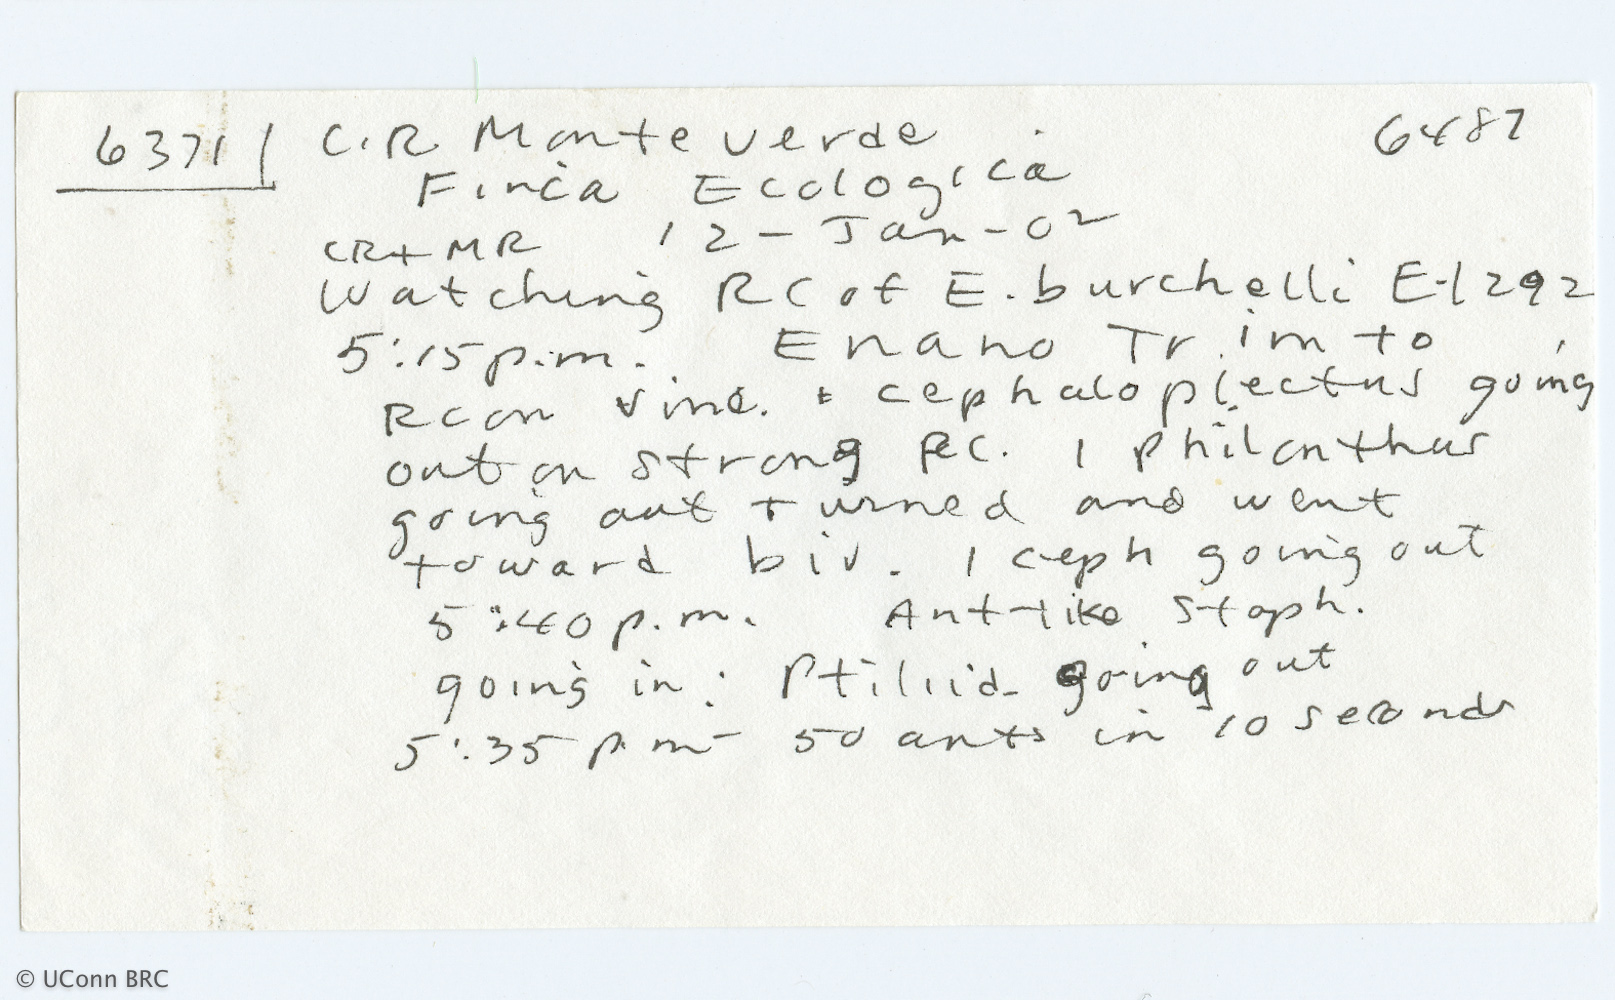 6371 C.R. Monteverde 6487
Finca Ecologica
CR+MR 12-Jan-02
Watching RC of E. burchelli E-1292
5:15 p.m. Enano Tr. 1m to
RC on vine. cephaloplectus going
out on strong RC. 1 Philonthus
going out turned and went
toward biv. 1 ceph going out
5:40 p.m. Ant-like Staph.
going in: Ptiliid going out
5:35 p.m - 50 ants in 10 seconds
© UConn BRC